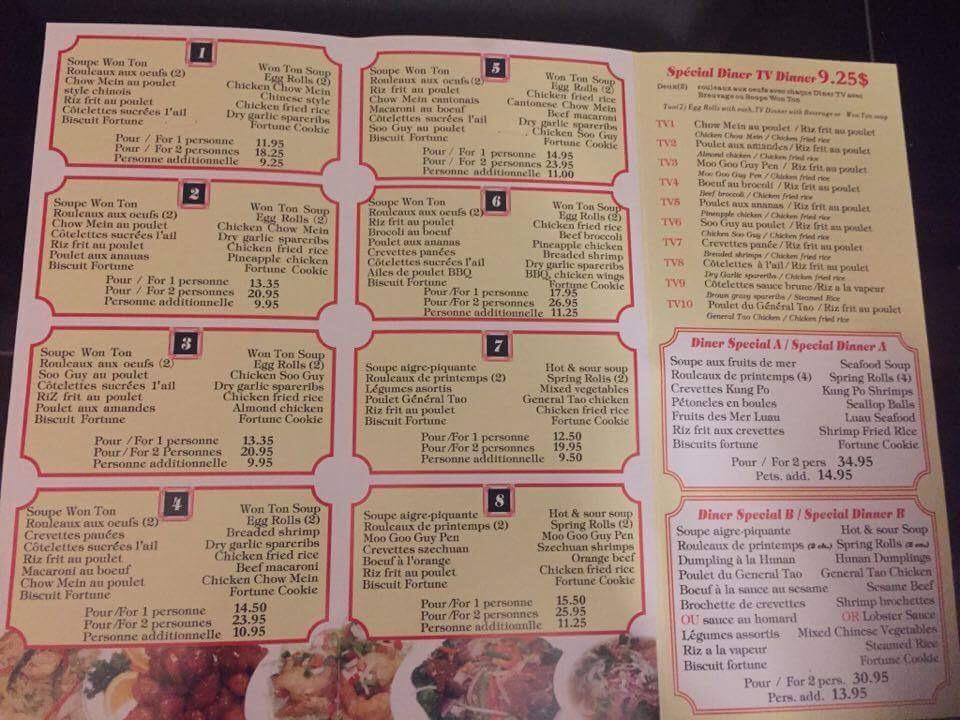 1
Soupe Won Ton Won Ton Soup
Rouleaux aux oeufs (2) Egg Rolls (2)
Chow Mein au poulet Chicken Chow Mein
style chinois Chinese style
Riz frit au poulet Chicken fried rice
Côtelettes sucrées l'ail Dry garlic spareribs
Biscuit Fortune Fortune Cookie
Pour / For 1 personne 11.95
Pour / For 2 personnes 18.25
Personne additionnelle 9.25
2
Soupe Won Ton Won Ton Soup
Rouleaux aux oeufs (2) Egg Rolls (2)
Chow Mein au poulet Chicken Chow Mein
Côtelettes sucrées l'ail Dry garlic spareribs
Riz frit au poulet Chicken fried rice
Poulet aux anauas Pineapple chicken
Biscuit Fortune Fortune Cookie
Pour / For 1 personne 13.35
Pour / For 2 personnes 20.95
Personne additionnelle 9.95
3
Soupe Won Ton Won Ton Soup
Rouleaux aux oeufs (2) Egg Rolls (2)
Soo Guy au poulet Chicken Soo Guy
Côtelettes sucrées l'ail Dry garlic spareribs
RiZ frit au poulet Chicken fried rice
Poulet aux amandes Almond chicken
Biscuit Fortune Fortune Cookie
Pour / For 1 personne 13.35
Pour / For 2 Personnes 20.95
Personne additionnelle 9.95
4
Soupe Won Ton Won Ton Soup
Rouleaux aux oeufs (2) Egg Rolls (2)
Crevettes panées Breaded shrimp
Côtelettes sucrées l'ail Dry garlic spareribs
Riz frit au poulet Chicken fried rice
Macaroni au boeuf Beef macaroni
Chow Mein au poulet Chicken Chow Mein
Biscuit Fortune Fortune Cookie
Pour /For 1 personne 14.50
Pour /For 2 personnes 23.95
Personne additionnelle 10.95
5
Soupe Won Ton Won Ton Soup
Rouleaux aux oeufs (2) Egg Rolls (2)
Riz frit au poulet Chicken fried rice
Chow Mein cantonais Cantonese Chow Mein
Macaroni au boeuf Beef macaroni
Côtelettes sucrées l'ail Dry garlic spareribs
Soo Guy au poulet Chicken Soo Guy
Biscuit Fortune Fortune Cookie
Pour / For 1 personne 14.95
Pour / For 2 personnes 23.95
Personne additionnelle 11.00
6
Soupe Won Ton Won Ton Soup
Rouleaux aux oeufs (2) Egg Rolls (2)
Riz frit au poulet Chicken fried rice
Brocoli au boeuf Beef broccoli
Poulet aux ananas Pineapple chicken
Crevettes panées Breaded shrimp
Côtelettes sucrées l'ail Dry garlic spareribs
Ailes de poulet BBQ BBQ, chicken wings
Biscuit Fortune Fortune Cookie
Pour/For 1 personne 17.95
Pour /For 2 personnes 26.95
Personne additionnelle 11.25
7
Soupe aigre-piquante Hot & sour soup
Rouleaux de printemps (2) Spring Rolis (2)
Légumes asortis Mixed vegetables
Poulet Général Tao General Tao chicken
Riz frit au poulet Chicken fried rice
Biscuit Fortune Fortune Cookie
Pour/For 1 personne 12.50
Pour /For 2 personnes 19.95
Personne additionnelle 9.50
8
Soupe aigre-piquante Hot & sour soup
Rouleaux de printemps (2) Spring Rolls (2)
Moo Goo Guy Pen Moo Goo Guy Pen
Crevettes szechuan Szechuan shrimps
Boeuf à l'orange Orange beef
Riz frit au poulet Chicken fried rice
Biscuit Fortune Fortune Cookie
Pour /For 1 personne 15.50
Pour /For 2 personnes 25.95
Personne additionnlle 11.25
Spécial Diner TV Dinner 9.25$
Deux(2) rouleaux aux oeufs avec chaque Diner TV avec
Breuvage ou Soupe Won Ton
Two(2) Egg Rolls with each TV Dinner with Beverage or Won Ton soup
TV1 Chow Mein au poulet / Riz frit au poulet
Chicken Chow Mein / Chicken fried rice
TV2 Poulet aux amandes/ Riz frit au poulet
Almond chicken / Chicken fried rice
TV3 Moo Goo Guy Pen / Riz frit au poulet
Moo Goo Guy Pen / Chicken fried rice
TV4 Boeuf au brocoli / Riz frit au poulet
Beef broccoli / Chicken fried rice
TV5 Poulet aux ananas / Riz frit au poulet
Pineapple chicken / Chicken fried rice
TV6 Soo Guy au poulet / Riz frit au poulet
Chicken Soo Guy / Chicken fried rice
TV7 Crevettes panée/ Riz frit au poulet
Breaded shrimps / Chicken fried rice
TV8 Côtelettes à l'ail / Riz frit au poulet
Dry Garlic spareribs / Chicken fried rice
TV9 Côtelettes sauce brune/Riz a la vapeur
Brown gravy spareribs / Steamed Rice
TV10 Poulet du Général Tao / Riz frit au poulet
General Tao Chicken / Chicken fried rice
Diner Special A / Special Dinner A
Soupe aux fruits de mer Seafood Soup
Rouleaux de printemps (4) Spring Rolls (4)
Crevettes Kung Po Kung Po Shrimps
Pétoncles en boules Seallop Balls
Fruits des Mer Luau Luau Seafood
Riz frit aux crevettes Shrimp Fried Rice
Biscuits fortune Fortune Cookie
Pour / For 2 pers 34.95
Pets. add. 14.95
Diner Special B / Special Dinner B
Soupe aigre-piquante Hot & sour Soup
Rouleaux de printemps (2 ch.) Spring Rolls (2 ea.)
Dumpling à la Hunan Hunan Dumplings
Poulet du General Tao General Tao Chicken
Boeuf à la sauce au sesame Sesame Beef
Brochette de crevettes Shrimp brochettes
OU sauce au homard OR Lobster Sauce
Légumes assortis Mixed Chinese Vegetables
Riz a la vapeur Steamed Rice
Biscuit fortune Fortune Cookie
Pour / For 2 pers. 30.95
Pers. add. 13.95